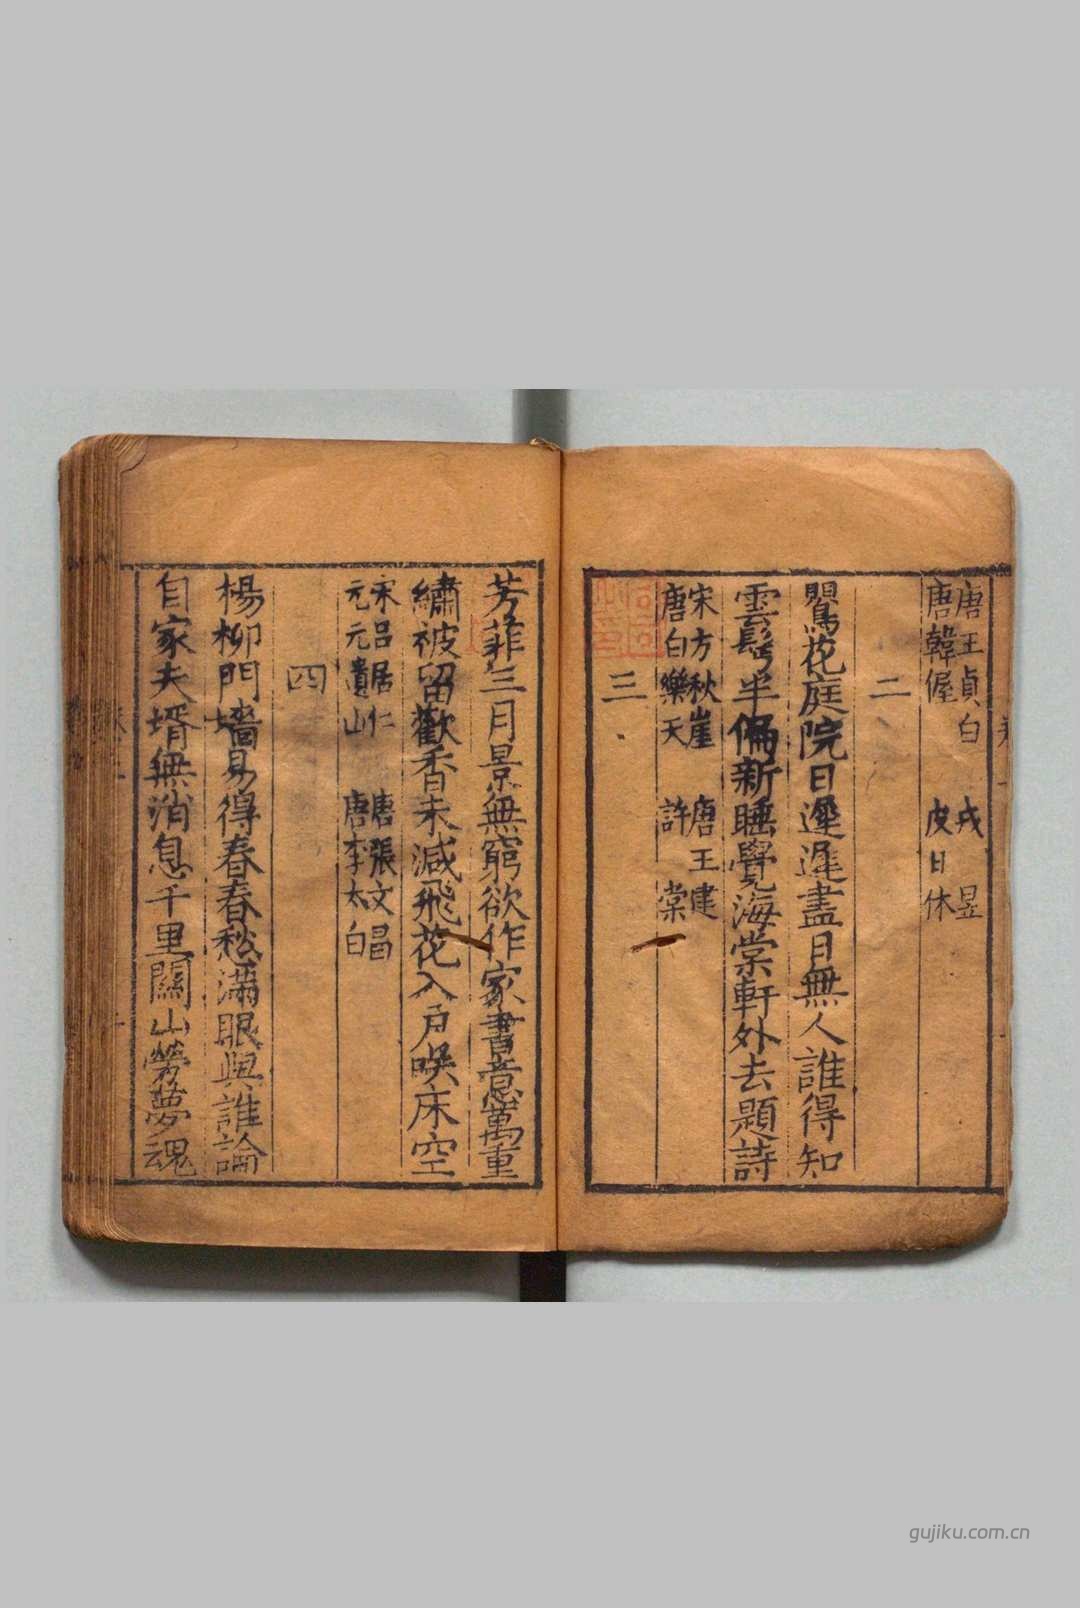 唐王貞白　戎昱
唐韓偓　皮日休
二
鸎花庭院日遲遲盡日無人誰得知
雲鬢半偏新睡覺海棠軒外去題詩
宋方秋崖　唐王建
唐白樂天　許棠
三
芳菲三月景無窮欲作家書意萬重
繡被留歡香未減飛花入戶唉床空
宋呂居仁　唐張文昌
元元遺山　唐李太白
四
楊柳門墻易得春春愁滿眼與誰論
自家夫壻無消息千里關山勞夢魂
gujiku.com.cn